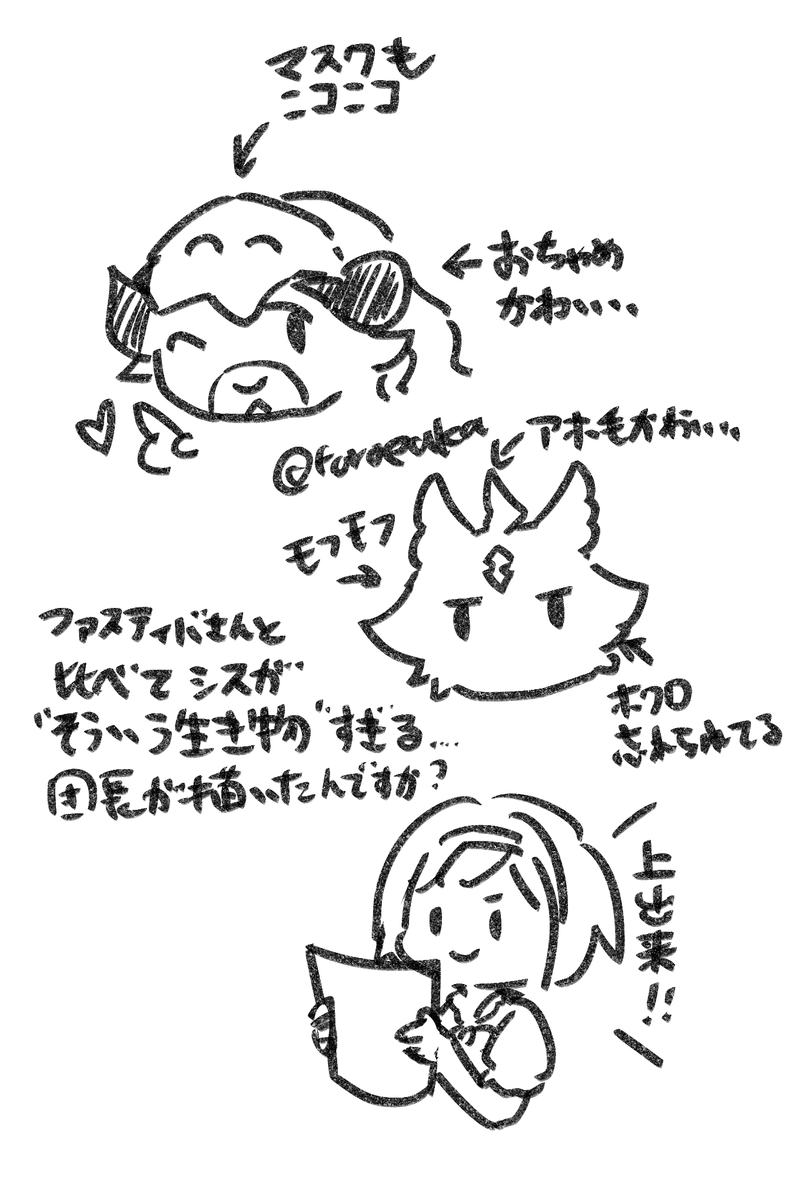 マスクも
ニコニコ
おちゃめ
かわいい、、
アホ毛かわいい、、、
モフモフ
ファスティバさんと
比べて シスが
"そういう生き物"すぎる…
団長が描いたんですか?
ホクロ
忘れられてる
上出来!!